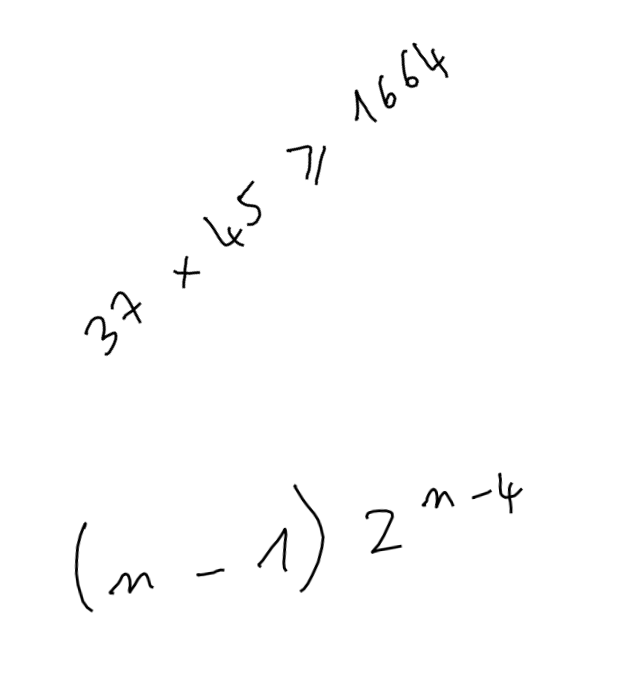 37 × 45 ⩾ 1664
(n - 1) 2^{n-4}